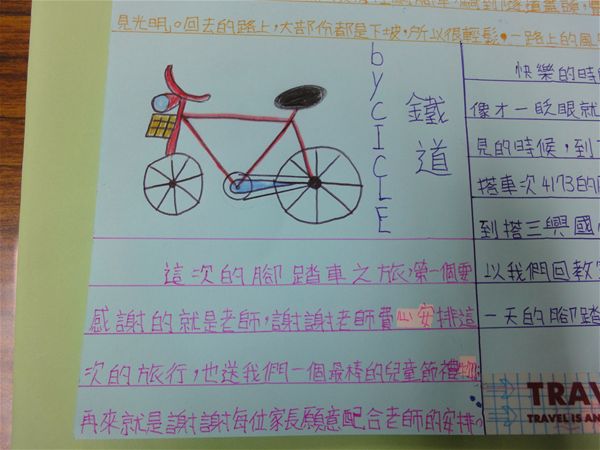 見光明。回去的路上,大部份都是下坡,所以很輕鬆,一路上的風
byCICLE
鐵道
這次的腳踏車之旅,第一個要
感謝的就是老師,謝謝老師費心安排這
次的旅行,也送我們一個最棒的兒童節禮物。
再來就是謝謝每位家長願意配合老師的安排。
快樂的時
像才一眨眼就
見的時候,到了
搭車次4173的
到搭三興國
以我們回教室
一天的腳踏
TRAV
TRAVEL IS AN